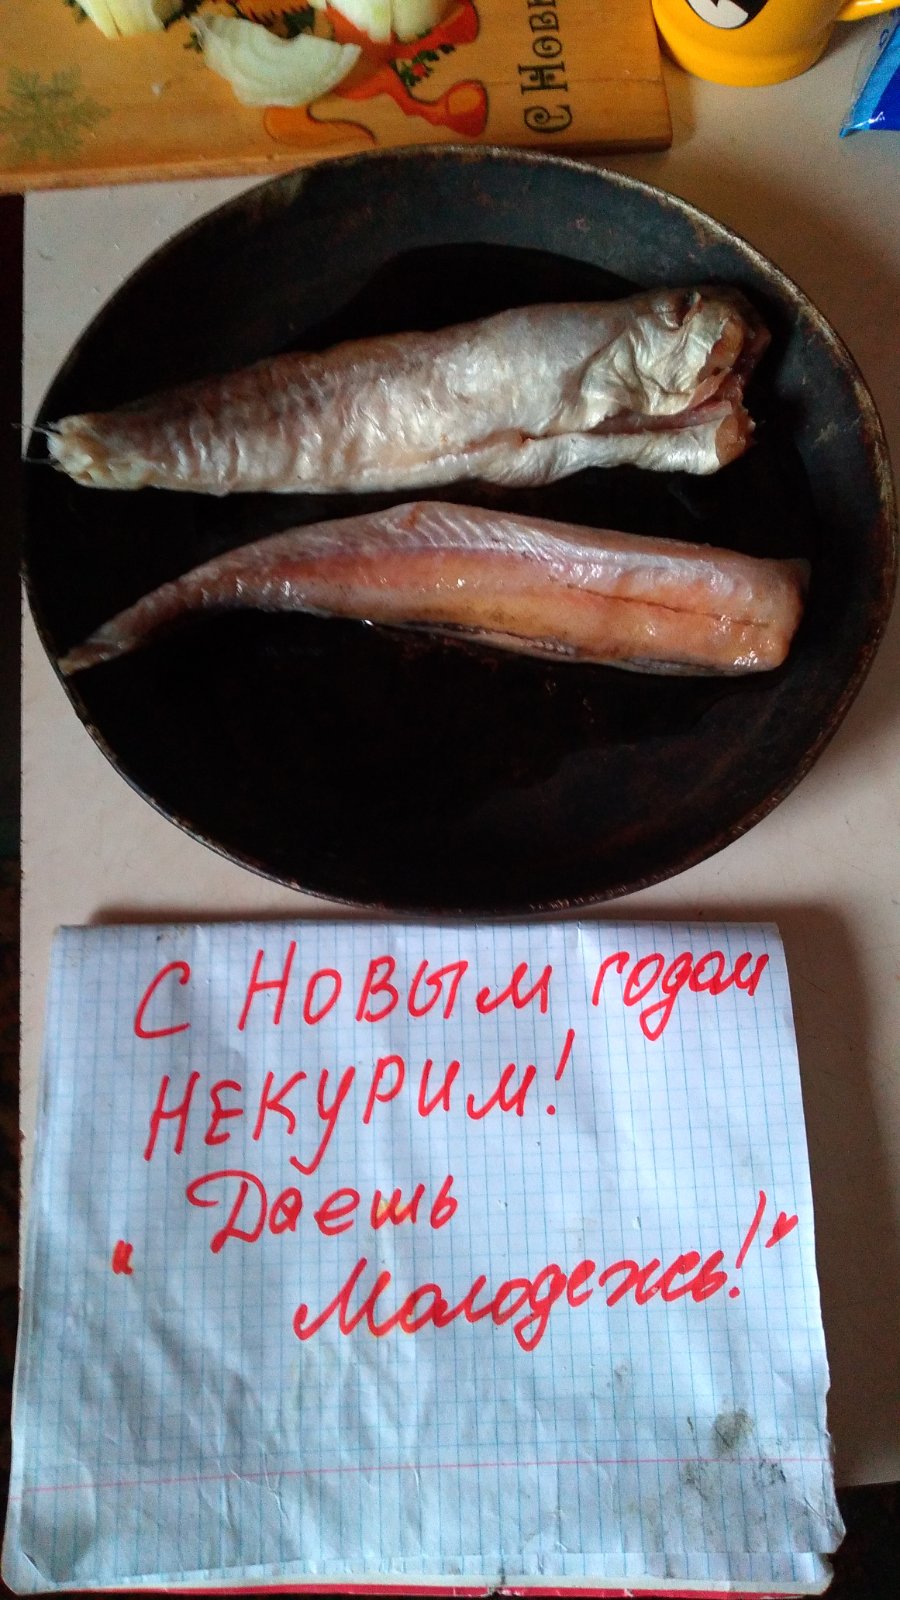 С Новы
С Новым годом
НЕКУРИМ!
" Даешь
Молодежь!"